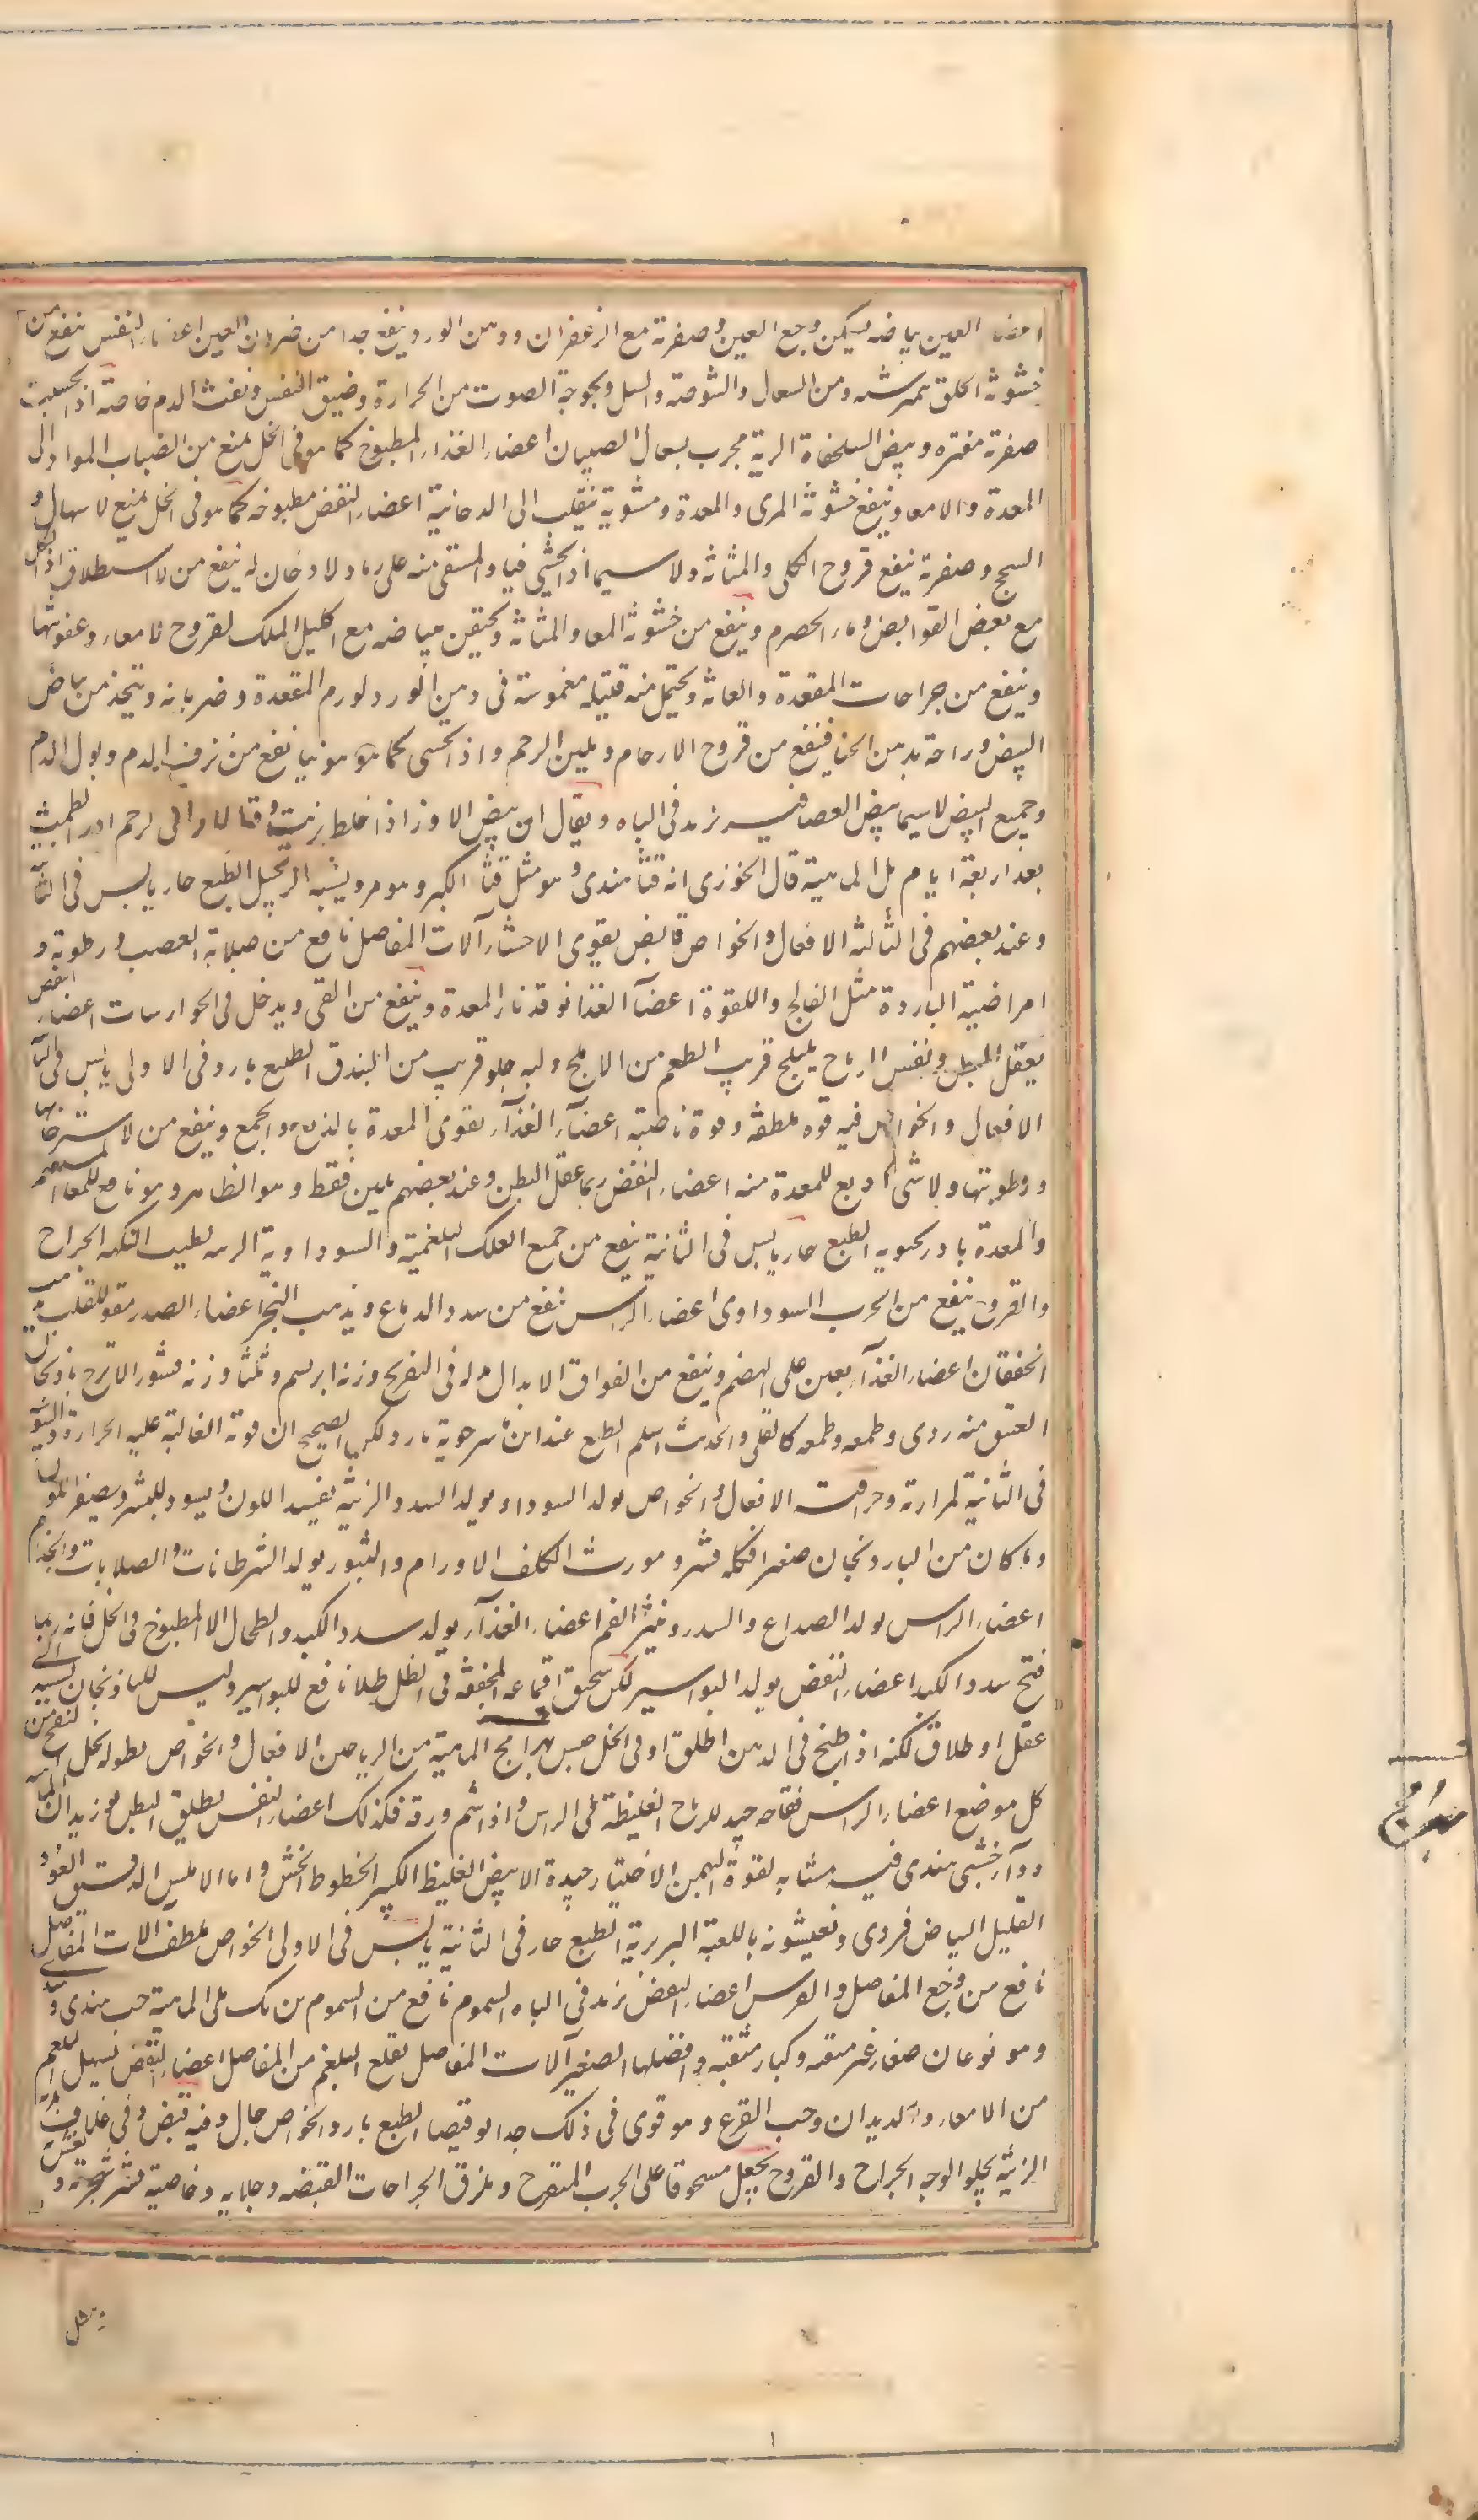 اعضاء العين بياضه يسكن وجع العين وصفرته مع الزعفران ودهن الورد ينفع جدا من ضربان العين اعضاء النفس ينفع من
خشونة الحلق بنمرشته ومن السعال والشوصة والسل وبحوحة الصوت من الحرارة وضيق النفس ونفث الدم خاصة اذا تحسيت
صفرته مفترة وبيض السلحفاة البرية مجرب لسعال الصبيان اعضاء الغذاء المطبوخ كما هو فى الخل يمنع من انصباب المواد الى
المعدة والامعاء وينفع خشونة المرى والمعدة ومشوية ينقلب الى الدخانية اعضاء النفض مطبوخه كما هو فى الخل يمنع الاسهال و
السحج وصفرته ينفع قروح الكلى والمثانة ولا سيما اذا تحسي نيا والمستقى منه على رماد لا دخان له ينفع من الاستطلاق اذا اكل
مع بعض القوابض وماء الحصرم وينفع من خشونة المعا والمثانة ويحتقن ببياضه مع اكليل الملك لقروح الامعاء وعفونتها
وينفع من جراحات المقعدة والعانة ويحتمل منه فتيلة مغموسة فى دهن الورد لورم المقعدة وضربانه ويتخذ من بياض
البيض وراحة بدهن الحنا فينفع من قروح الارحام ويلين الرحم واذا تحسى كما هو نيا نفع من نزف الدم وبول الدم
وجميع البيض لاسيما بيض العصافير يزيد فى الباه ويقال ان بيض الاوز اذا خلط بزيت وقطر فاترا فى الرحم ادر الطمث
بعد اربعة ايام بل الماهية قال الخوزى انه قثاء هندى وهو مثل قثاء الكبر وهو مر ويشبه الزنجبيل الطبع حار يابس فى الثا
وعند بعضهم فى الثالثة الافعال والخواص قابض يقوى الاحشاء آلات المفاصل نافع من صلابة العصب ورطوبة و
امراضه الباردة مثل الفالج واللقوة اعضاء الغذا يوقد نار المعدة وينفع من القى ويدخل فى الجوارسات اعضاء النفض
يعقل البطن وينفش الرياح بليلج قريب الطعم من الاملج ولبه حلو قريب من البندق الطبع بارد فى الاولى يابس فى الثا
الافعال والخواص فيه قوة ملطفة وقوة قابضة اعضاء الغذاء يقوى المعدة بالدبغ والجمع وينفع من استرخائها
ورطوبتها ولا شى ادبغ للمعدة منه اعضاء النفض ربما عقل البطن وعند بعضهم يلين فقط وهو الظاهر وهو نافع للمعا المستقيم
والمعدة بادرنجبويه الطبع حار يابس فى الثانية ينفع من جميع العلل البلغمية والسوداوية الزينة يطيب النكهة الجراح
والقروح ينفع من الجرب السوداوى اعضاء الراس ينفع من سدد الدماغ ويذهب البخر اعضاء الصدر مقو للقلب يذهب
الخفقان اعضاء الغذاء يعين على الهضم وينفع من الفواق الابدال بدله فى التفريح وزنه ابريسم وثلثا وزنه قشور الاترج باذنجان
العتيق منه ردى وطعمه كالقلى والحديث اسلم الطبع عند ابن ماسرجوية بارد ولكن الصحيح ان قوته الغالبة عليه الحرارة واليبس
فى الثانية لمرارته وحرافته الافعال والخواص يولد السوداء ويولد السدد الزينة يفسد اللون ويسود البشرة ويصفر اللون
وما كان من الباذنجان صغيرا فكله قشر ويورث الكلف الاورام والبثور يولد السرطانات والصلابات والجذام
اعضاء الراس يولد الصداع والسدر وينتن الفم اعضاء الغذاء يولد سدد الكبد والطحال الا المطبوخ فى الخل فانه ربما
فتح سدد الكبد اعضاء النفض يولد البواسير لكن سحيق اقماعه المجففة فى الظل طلاء نافع للبواسير وليس للباذنجان نسبة الى
عقل او طلاق لكنه اذا طبخ فى الدهن اطلق او فى الخل حبس بهرامج الماهية من الرياحين الافعال والخواص نطوله يحل النفخ من
كل موضع اعضاء الراس فقاحه جيد للرياح الغليظة فى الراس واذا شم ورقه فكذلك اعضاء النفس يطلق البطل بوزيدان الماهية
دوآء خشبى هندى فيه مشابه لقوة البهمن الاختيار جيدة الابيض الغليظ الكبير الخطوط الخشن واما الاملس الدقيق العود
القليل البياض فردى ويغشونه باللعبة البربرية الطبع حار فى الثانية يابس فى الاولى الخواص ملطف آلات المفاصل
نافع من وجع المفاصل والنقرس اعضاء النفض يزيد فى الباه السموم نافع من السموم برنك بلى الماهية حب هندى وسندى
وهو نوعان صغار غير منقبة وكبار منقبة وافضلها الصغير آلات المفاصل يقلع البلغم من المفاصل اعضاء النفض يسهل البلغم
من الامعاء والديدان وحب القرع وهو قوى فى ذلك جدا بوقيصا الطبع بارد الخواص جال وفيه قبض وفى غلاف
الزينة يجلو الوجه الجراح والقروح يجعل مسحوقا على الجرب المتقرح ويلزق الجراحات لقبضه وجلايه وخاصية قشر شجرته و
مثل